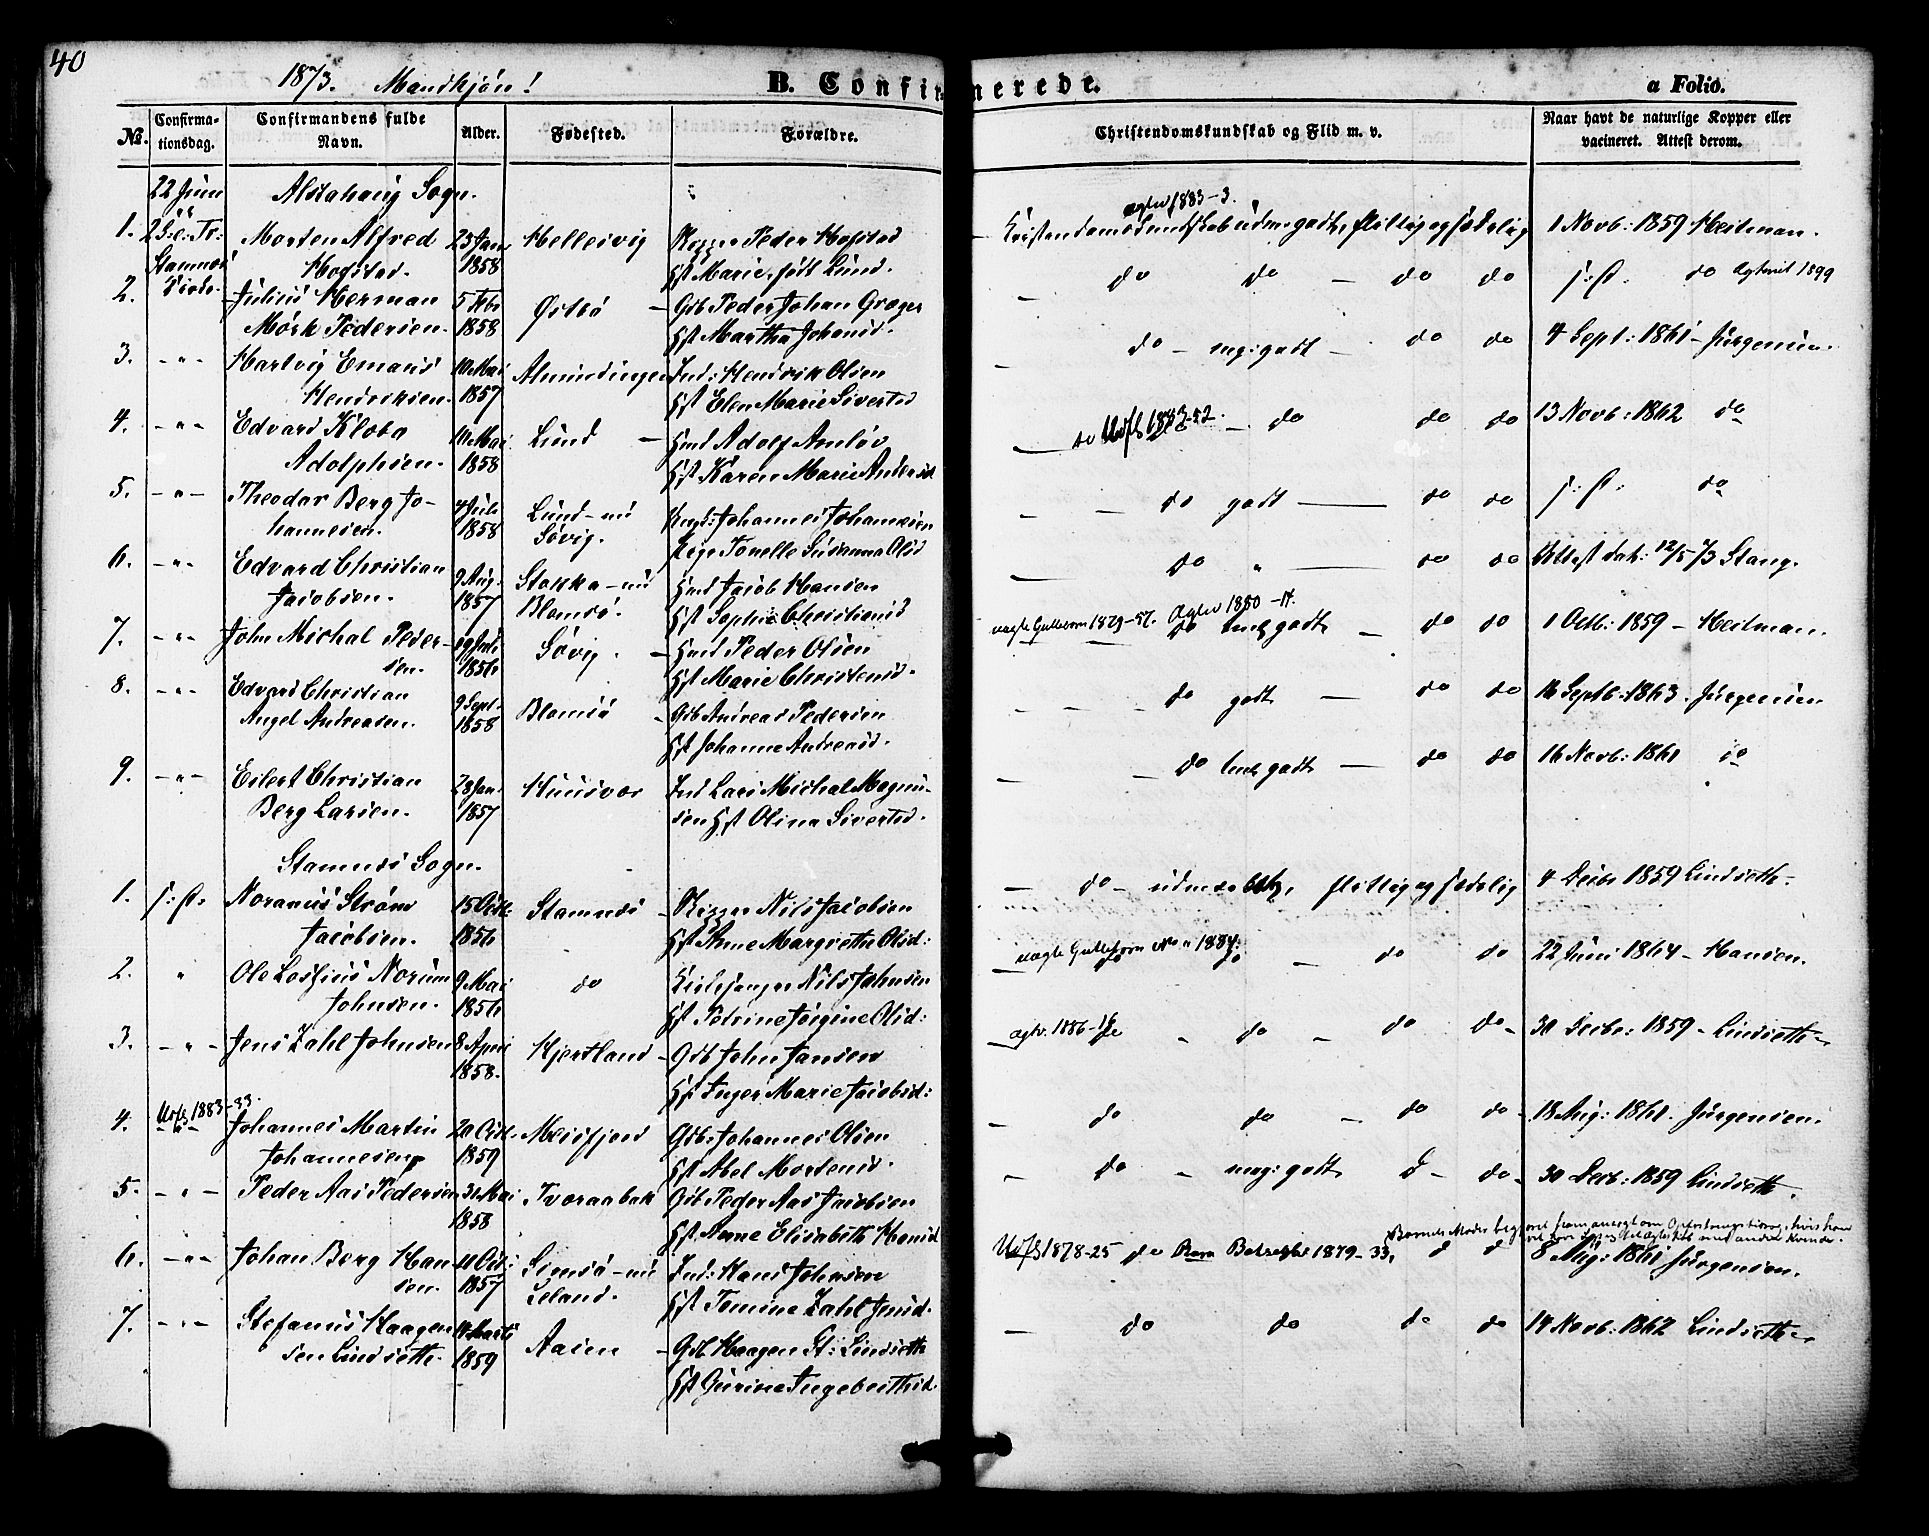 40
1873. Mandkjøn!
B. Confirmerede.
a Folio.
No.
Confirmationsdag.
Confirmandens fulde Navn.
Alder.
Fødested.
Forældre.
Christendomskundskab og Flid m. v.
Naar havt de naturlige Kopper eller vacineret. Attest derom.
22 Juni Alstahaug Sogn.
1. Morten Alfred Hofstad. 25 Jan. 1858 Helleivig Peder Hofstad Hst Marie, født Lund. 1883-3. Kristendomskundskab udm. godt, flittig og sædelig 1 Novb: 1859 Heitman.
2. Julius Herman Mørk Pedersen. 5 Feb 1858 Østbø Gdb Peder Johan Græger Hst Martha Johnsd. do do do do s: D: do 1899
3. - " - Hartvig Emaus Hendriksen. 10 Mai 1857 Almindingen Ind: Hendrik Olsen Hst Elen Marie Sivertsd do - meg: godt - do do 4 Sept: 1861 - Jürgensen.
4. - " - Edvard Klobo Adolphsen. 10 Mai 1858 Lund Hmd Adolf Amløv Hst Karen Marie Andersd 1883-52. do do do 13 Novb: 1862 do
5. - " - Theodor Berg Johannesen. 4 Juli 1858 Lund - nu Søvig. Johannes Johannesen Pige Tonelle Susanna Olsd do godt do do do
6. - " - Edvard Christian Jacobsen. 9 Aug. 1857 Stokka - nu Blomsø. Hmd Jacob Hansen Hst Sophie Christiansd do " do do Attest dat: 12/5 73 Stang.
7. - " - John Michal Pedersen. 1856 Søvig. Hmd Peder Olsen Hst Marie Christensd. 1880-14. do godt do do 1 Octb: 1859 - Heitman.
8. - " - Edvard Christian Angel Andreasen. 9 Sept. 1858 Blomsø Gdb Andreas Pedersen Hst Johanne Andreasd. do godt do do 16 Septb. 1863. Jürgensen
9. - " - Eilert Christian Berg Larsen. 28 Jan. 1857 Huusvær Ind Lars Michal Magnussen Hst Olina Sivertsd. do godt do do 16 Novb: 1861 do
Stamnes Sogn.
1. Noranus Strøm Jacobsen. 15 Octb: 1856 Stamnes Nils Jacobsen Hst Anne Margrethe Olsd: do flittig og sædelig 4 Decbr 1859 Lindseth.
2. " Ole Losjius Norum Johnsen. 9 Mai 1856 do Kirkesanger Nils Johnsen Hst Petrine Jørgine Olsd: 1884. do do do 22 Juni 1864 - Hansen.
3. - " - Jens Zahl Johnsen 8 April 1858. Hjertland Gdb John Jansen Hst Inger Marie Jacobsd: 1886-16 do do do 30 Decbr: 1859 - Lindseth
4. 1883-33. Johannes Martin Johannesen 20 Octb. 1859 Meisfjord Gdb: Johannes Olsen Hst Abel Mortensd. do do do do 18 Aug: 1861. Jürgensen.
5. - " - Peder Aas Pedersen 31 Mai 1858 Tveraabak Gdb Peder Aas Jacobsen Hst Anne Elisabeth Hansd do - meg: godt do 30 Decb: 1859 Lindseth.
6. - " - Johan Berg Hansen. 11 Oct: 1857 Simsø - nu Leland. Ind: Hans Johnsen Hst Tomine Zahl Jensd. 1878-25 do 1879-33, 8 Aug: 1861 Jürgensen.
7. - " - Stefanus Haagensen Lindseth. 14 Marts 1859 Aasen Gdb Haagen St: Lindseth Hst Gurine Ingebrethsd. do do do do 14 Novb: 1862 Lindseth